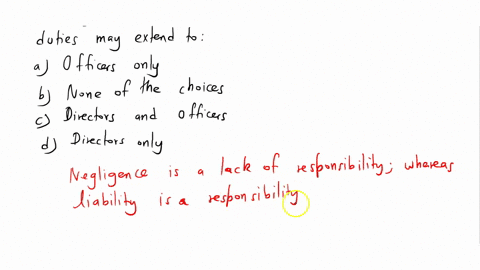 duties may extend to:
a) Officers only
b) None of the choices
c) Directors and officers
d) Directors only
Negligence is a lack of responsibility; whereas
liability is a responsibility